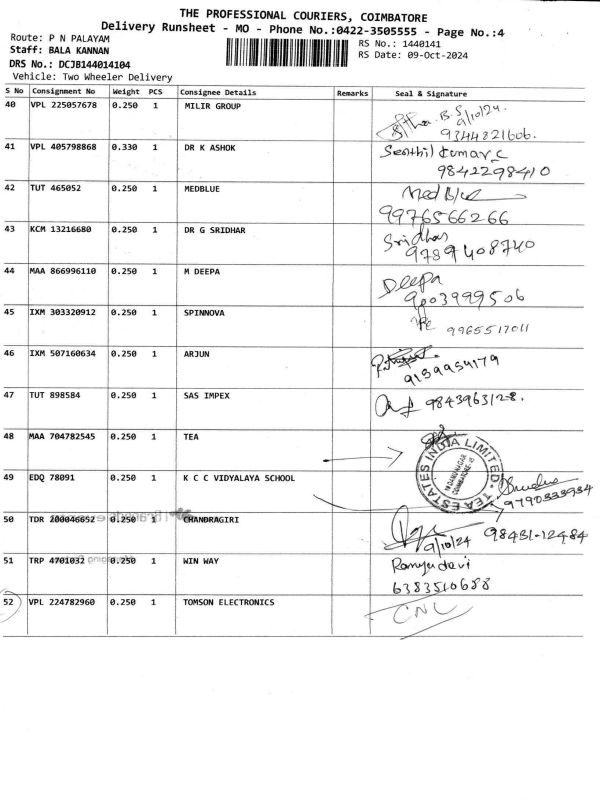 THE PROFESSIONAL COURIERS, COIMBATORE
Delivery Runsheet - MO - Phone No.:0422-3505555 - Page No.:4
Route: P N PALAYAM
RS No.: 1440141
Staff: BALA KANNAN
RS Date: 09-Oct-2024
DRS No.: DCJB144014104
Vehicle: Two Wheeler Delivery
S No Consignment No Weight PCS Consignee Details Remarks Seal & Signature
40 VPL 225057678 0.250 1 MILIR GROUP
B.S
9/10/24.
9344821606.
41 VPL 405798868 0.330 1 DR K ASHOK Senthil Kumar.C
9842298410
42 TUT 465052 0.250 1 MEDBLUE Med Blue
9976566266
43 KCM 13216680 0.250 1 DR G SRIDHAR Sridhar
9789408740
44 MAA 866996110 0.250 1 M DEEPA Deepa
9003999506
45 IXM 303320912 0.250 1 SPINNOVA
9965517011
46 IXM 507160634 0.250 1 ARJUN
9159959179
47 TUT 898584 0.250 1 SAS IMPEX 9843963128.
48 MAA 704782545 0.250 1 TEA
TEA ESTATES INDIA LIMITED
COIMBATORE
49 EDQ 78091 0.250 1 K C C VIDYALAYA SCHOOL
9790333934
50 TDR 200046652 0.250 1 CHANDRAGIRI
9/10/24 98431-12484
51 TRP 4701032 0.250 1 WIN WAY Ramyadevi
6383510688
52 VPL 224782960 0.250 1 TOMSON ELECTRONICS CNL